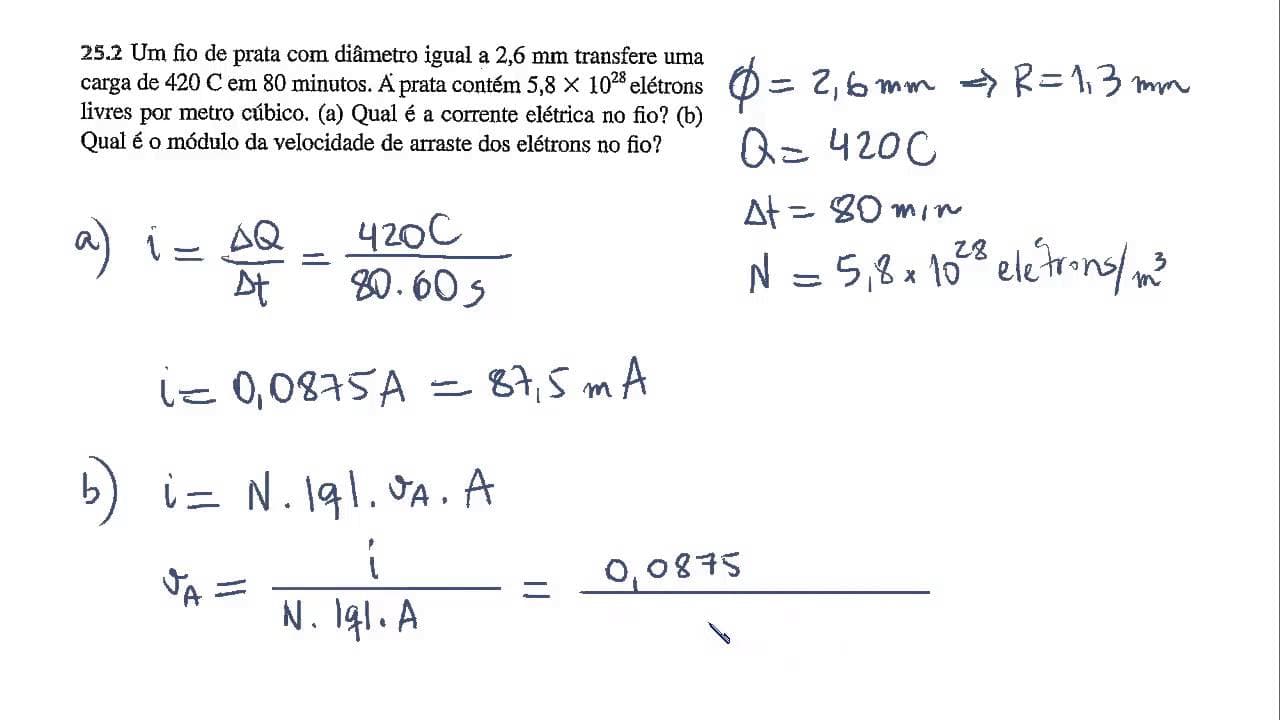 25.2 Um fio de prata com diâmetro igual a 2,6 mm transfere uma
carga de 420 C em 80 minutos. A prata contém 5,8 × 10²⁸ elétrons
livres por metro cúbico. (a) Qual é a corrente elétrica no fio? (b)
Qual é o módulo da velocidade de arraste dos elétrons no fio?
ϕ = 2,6 mm ⇒ R = 1,3 mm
Q = 420C
Δt = 80 min
N = 5,8 × 10²⁸ elétrons/m³
a) i = ΔQ/Δt = 420C/80.60s
i = 0,0875A = 87,5 mA
b) i = N.|q|.vA.A
vA = i/N.|q|.A = 0,0875